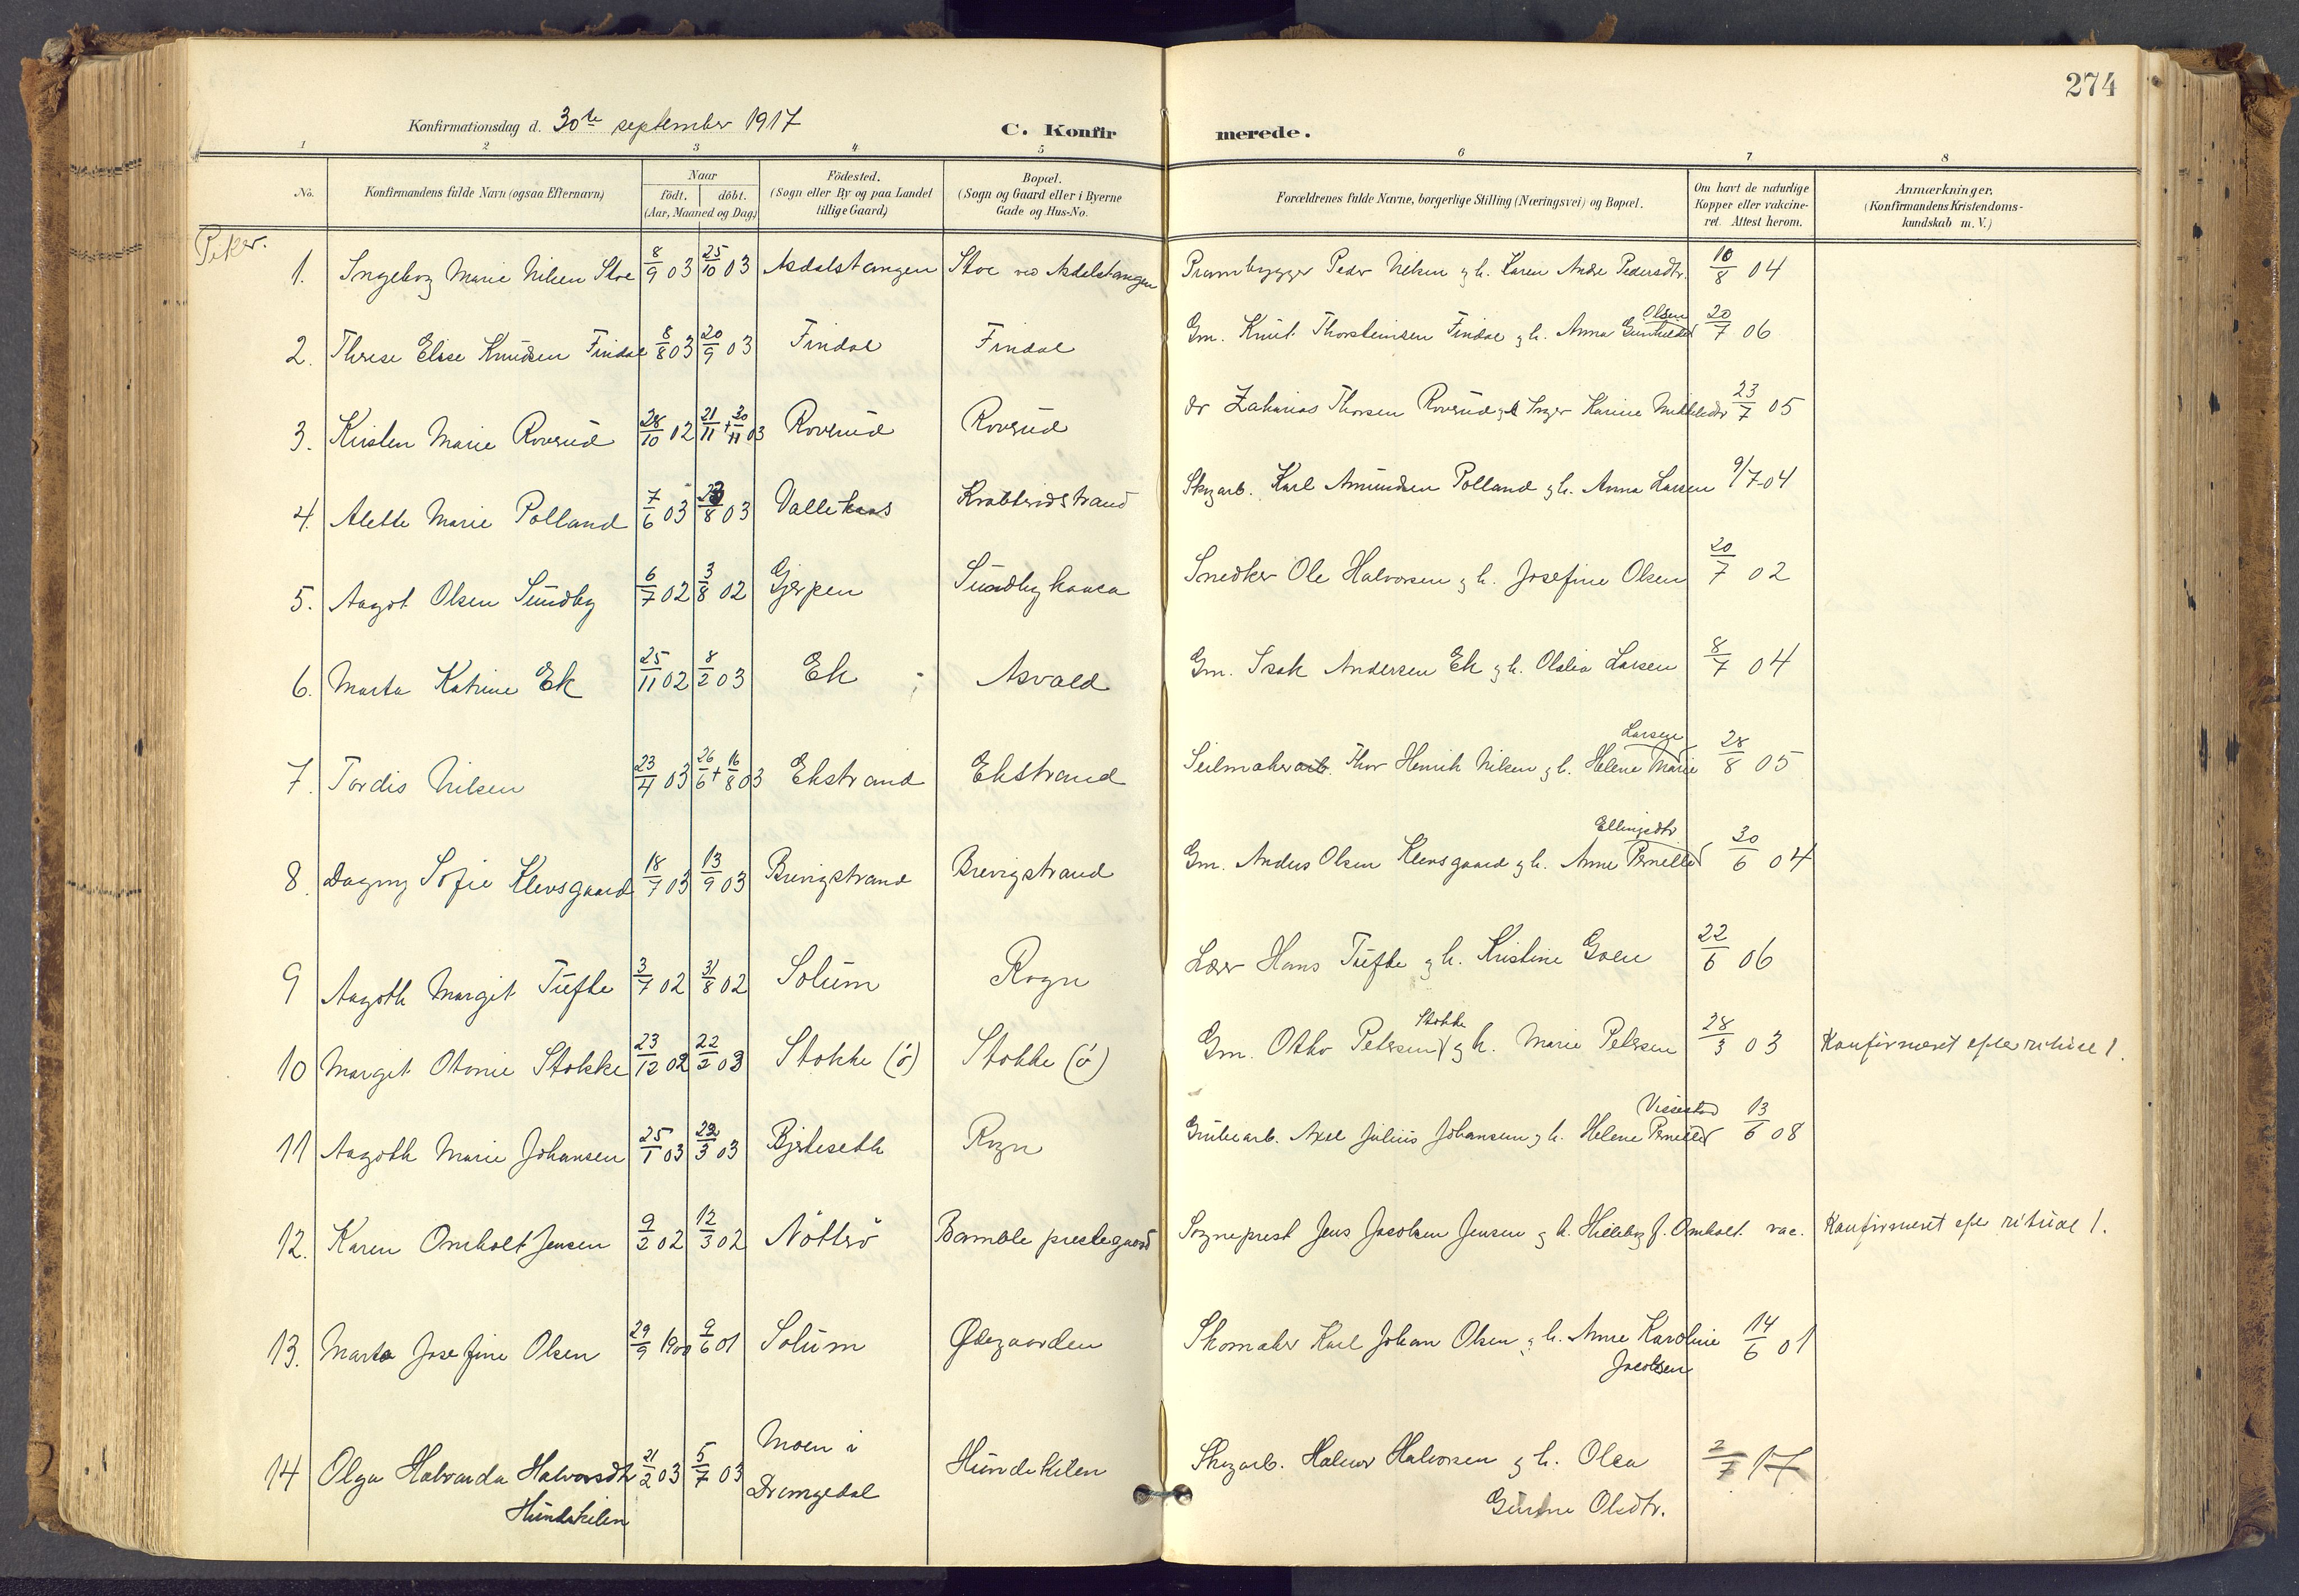 274
Konfirmationsdag d. 30te september 1917
C. Konfirmerede.
1 2 3 4 5 6 7 8
No.
Konfirmandens fulde Navn (ogsaa Efternavn)
Naar
födt. döbt.
(Aar, Maaned og Dag)
Födested.
(Sogn eller By og paa Landet
tillige Gaard)
Bopæl.
(Sogn og Gaard eller i Byerne
Gade og Hus-No.
Forældrenes fulde Navne, borgerlige Stilling (Næringsvei) og Bopæl.
Om havt de naturlige
Kopper eller vakcine-
ret. Attest herom.
Anmærkninger.
(Konfirmandens Kristendoms-
kundskab m. V.)
Piker.
1. Ingeborg Marie Nilsen Stoe 8/9 03 25/10 03 Asdalstangen Stoe ved Asdalstangen Prambygger Peder Nilsen g h. Karen Andre Pedersdtr. 10/8 04
2. Therese Elise Knudsen Findal 8/8 03 20/9 03 Findal Findal Gm. Knut Thorsteinsen Findal g h. Anna Gunhilda Olsen 20/7 06
3. Kirsten Marie Roverud 28/10 02 21/11 + 30/11 03 Roverud Roverud dr Zakarias Thorsen Roverud g h Inger Karine 23/7 05
4. Alette Marie Polland 7/6 03 23/8 03 Valle Skogarb. Karl Amundsen Polland g h. Anna Larsen 9/7 04
5. Aagot Olsen Sundby 6/7 02 3/8 02 Gjerpen Sundbykaasa Snedker Ole Halvorsen g h. Josefine Olsen 20/7 02
6. Marta Katrine Ek 25/11 02 8/2 03 Ek Asvald Gm. Isak Andersen Ek g h. Olalia Larsen 8/7 04
7. Tordis Nilsen 23/4 03 26/6 + 16/8 03 Ekstrand Ekstrand Seilmakerarb. Thor Henrik Nilsen g h. Helene Marie Larsen 28/8 05
8. Dagny Sofie Klevsgaard 18/7 03 13/9 03 Brevigstrand Brevigstrand Gm. Anders Olsen Klevsgaard g h. Anne Pernille Ellingsdtr 30/6 04
9 Aagoth Margit Tufte 3/7 02 31/8 02 Solum Rogn Lærer Hans Tufte g h. Kristine Goen 22/6 06
10 Margit Otonie Stokke 23/12 02 22/2 03 Stokke (ö) Stokke (ö) Gm. Otto Petersen Stokke g h. Marie Petersen 28/3 03 Konfirmeret efter rituae 1.
11 Aagoth Marie Johansen 25/1 03 22/3 03 Bjerkeseth Rogn Grubearb. Axel Julius Johansen g h. Helene Pernille Vissestad 13/6 08
12. Karen Omholt Jensen 9/2 02 12/3 02 Nötterö Bamble prestegaard Sogneprest Jens Jacobsen Jensen g h. Hilleborg f. Omholt vac. Konfirmeret efter rituae 1.
13. Marta Josefine Olsen 29/9 1900 9/6 01 Solum Ødegaarden Skomaker Karl Johan Olsen g h. Anne Karoline 14/6 01
Jacobsen
14 Olga Halvarda Halvorsdtr 21/2 03 5/7 03 Moen i Drangedal Hundekilen Skogarb. Halvor Halvorsen g h. Olea 2/7 17
Hundekilen
Gurine Olsdtr.